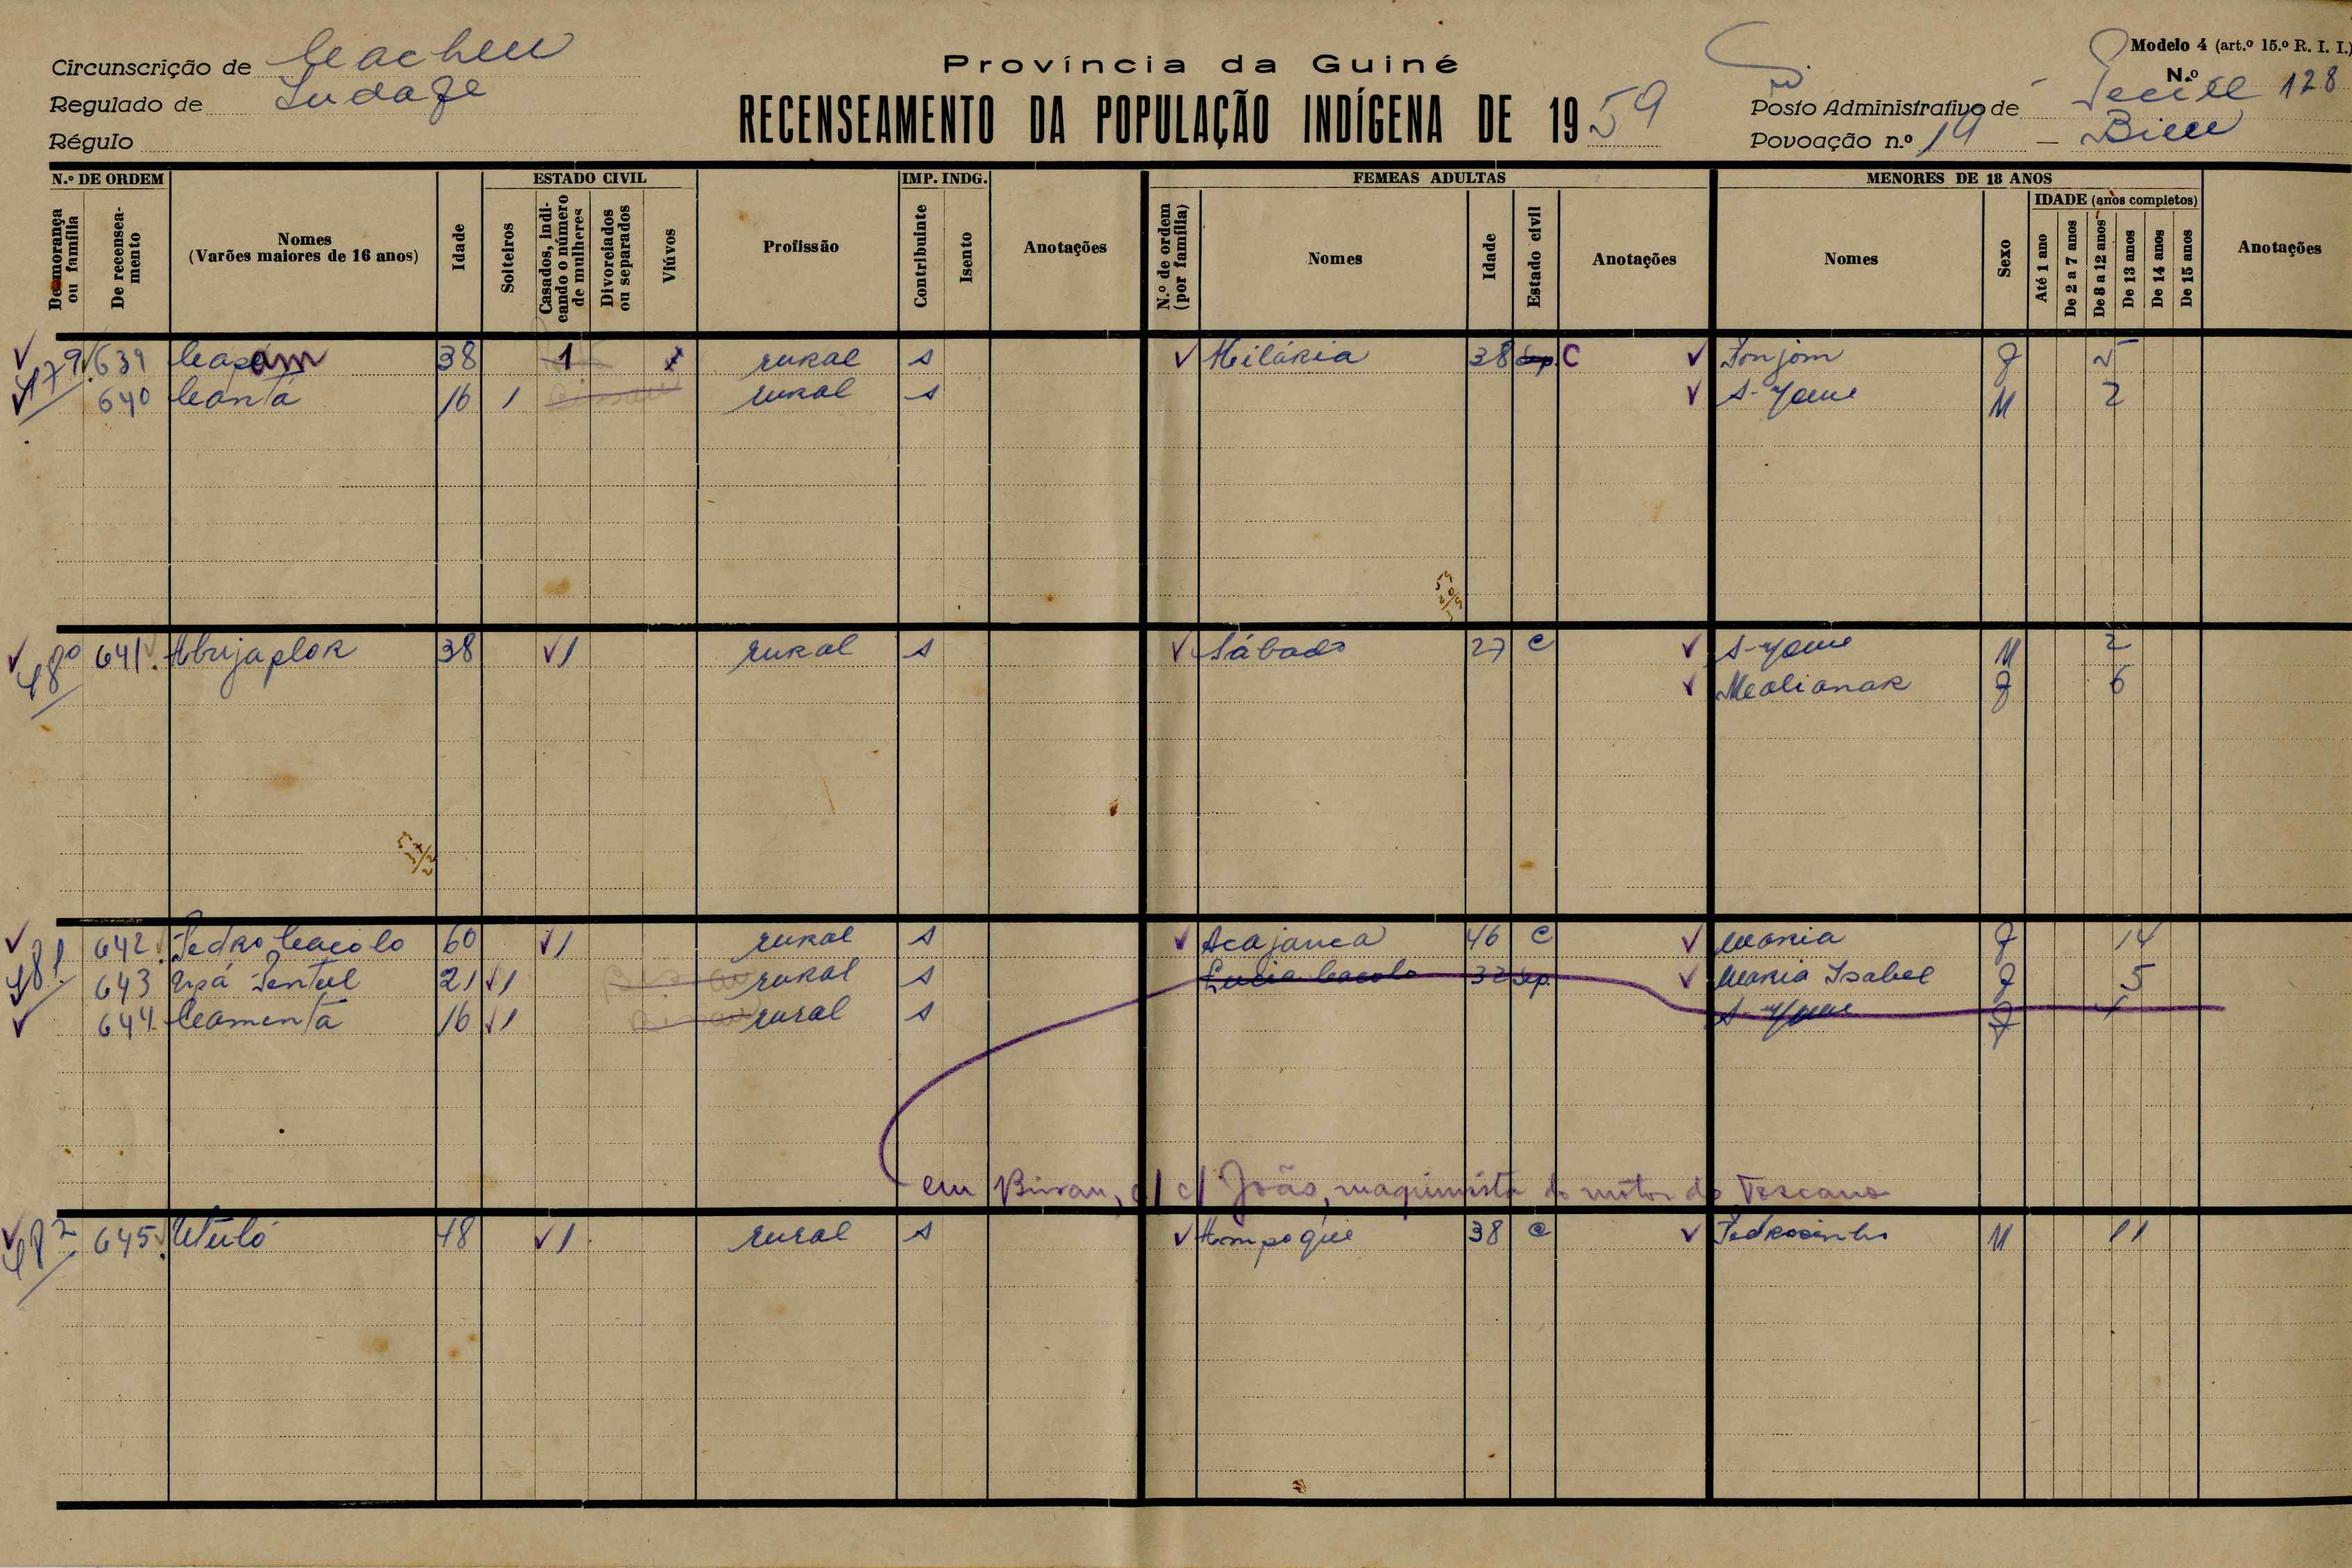 Circunscrição de Cacheu
Regulado de
Régulo
Província da Guiné
RECENSEAMENTO DA POPULAÇÃO INDÍGENA DE 1959
Modelo 4 (art.º 15.º R. I. I.)
N.º 128
Posto Administrativo de
Povoação n.º 19 —
N.º DE ORDEM
De morança ou família
De recenseamento
Nomes (Varões maiores de 16 anos)
Idade
ESTADO CIVIL
Solteiros
Casados, indicando o número de mulheres
Divorciados ou separados
Viúvos
Profissão
IMP. INDG.
Contribuinte
Isento
Anotações
FEMEAS ADULTAS
N.º de ordem (por família)
Nomes
Idade
Estado civil
Anotações
MENORES DE 18 ANOS
Nomes
Sexo
IDADE (anos completos)
Até 1 ano
De 2 a 7 anos
De 8 a 12 anos
De 13 anos
De 14 anos
De 15 anos
Anotações
479 639 38 1 rural s Hilária 38 Sep. C Jonjom F 5
640 16 1 rural s M 2
480 641 38 1 rural s Sábado 27 C M 2
Mealianar F 6
481 642 Pedro Cacolo 60 1 rural s Acajanca 46 C Maria F 14
643 21 1 rural s Lucia Cacolo 32 Sep. Maria Isabel F 5
644 Camenta 16 1 rural s F
em Bissau, c/ c/ João, maquinista do motor do Toscano
482 645 Utuló 48 1 rural s Ampoque 38 C Pedrosinho M 11